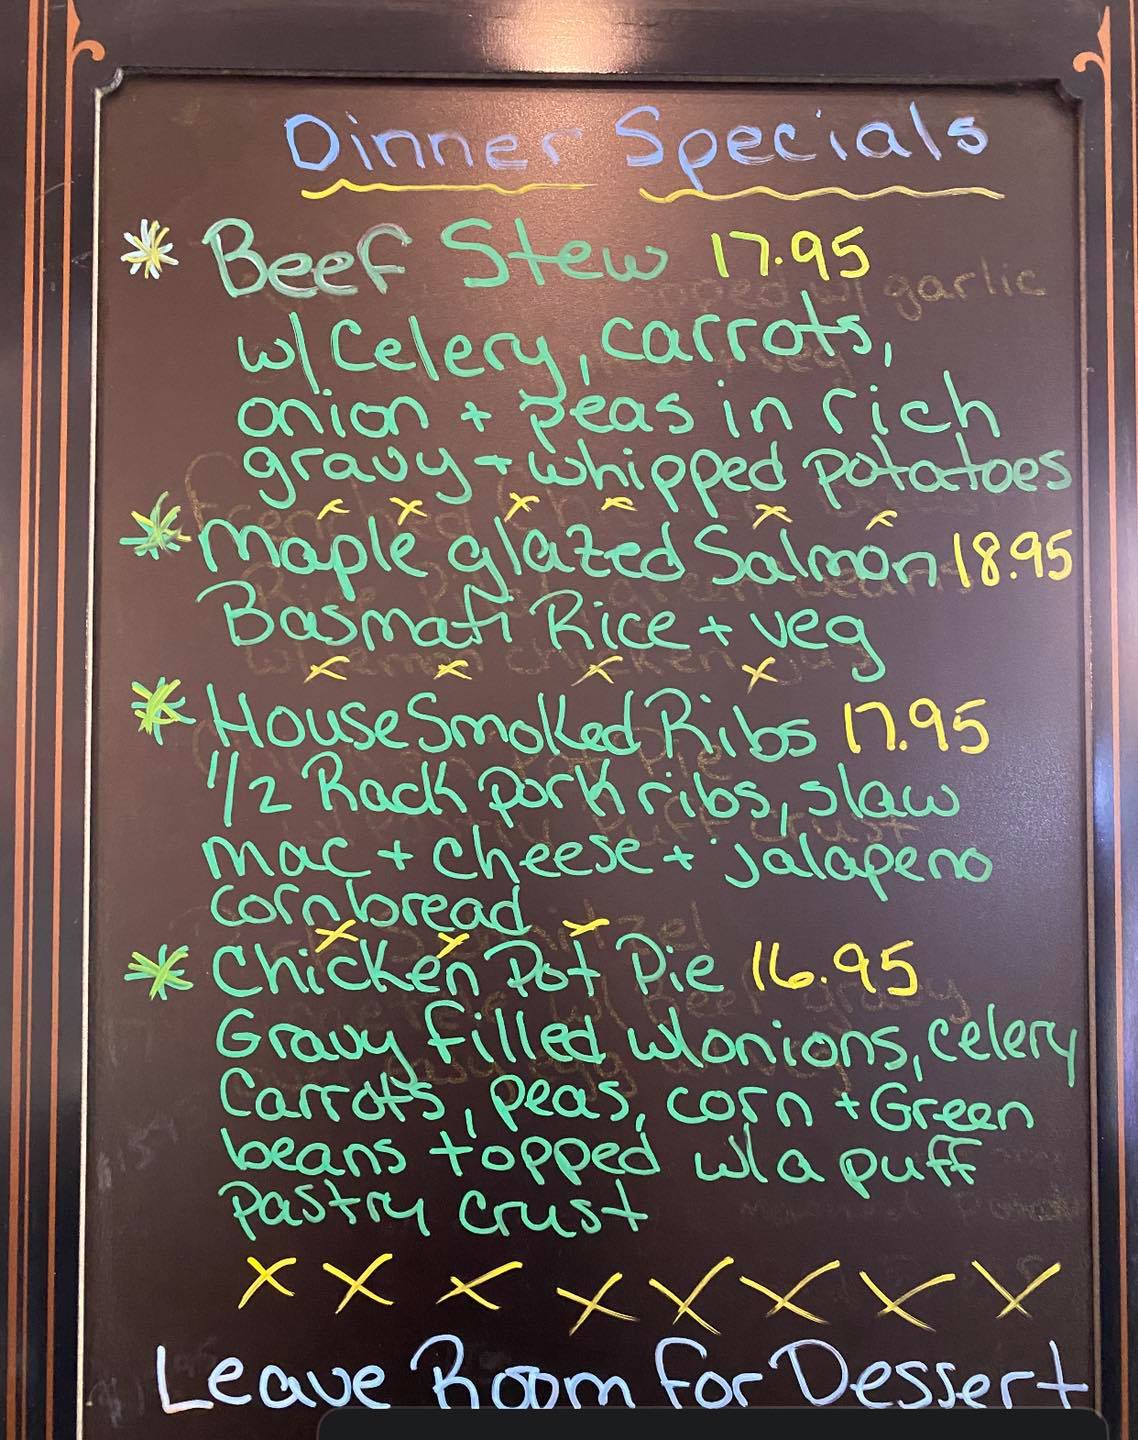 Dinner Specials
Beef Stew 17.95
w/ Celery, carrots,
onion + peas in rich
gravy + whipped potatoes
Maple glazed Salmon 18.95
Basmati Rice + veg
House Smoked Ribs 17.95
1/2 Rack pork ribs, slaw
mac + cheese + jalapeno
cornbread
Chicken Pot Pie 16.95
Gravy filled w/onions, celery
Carrots, peas, corn + Green
beans topped w/ a puff
pastry crust
Leave Room For Dessert